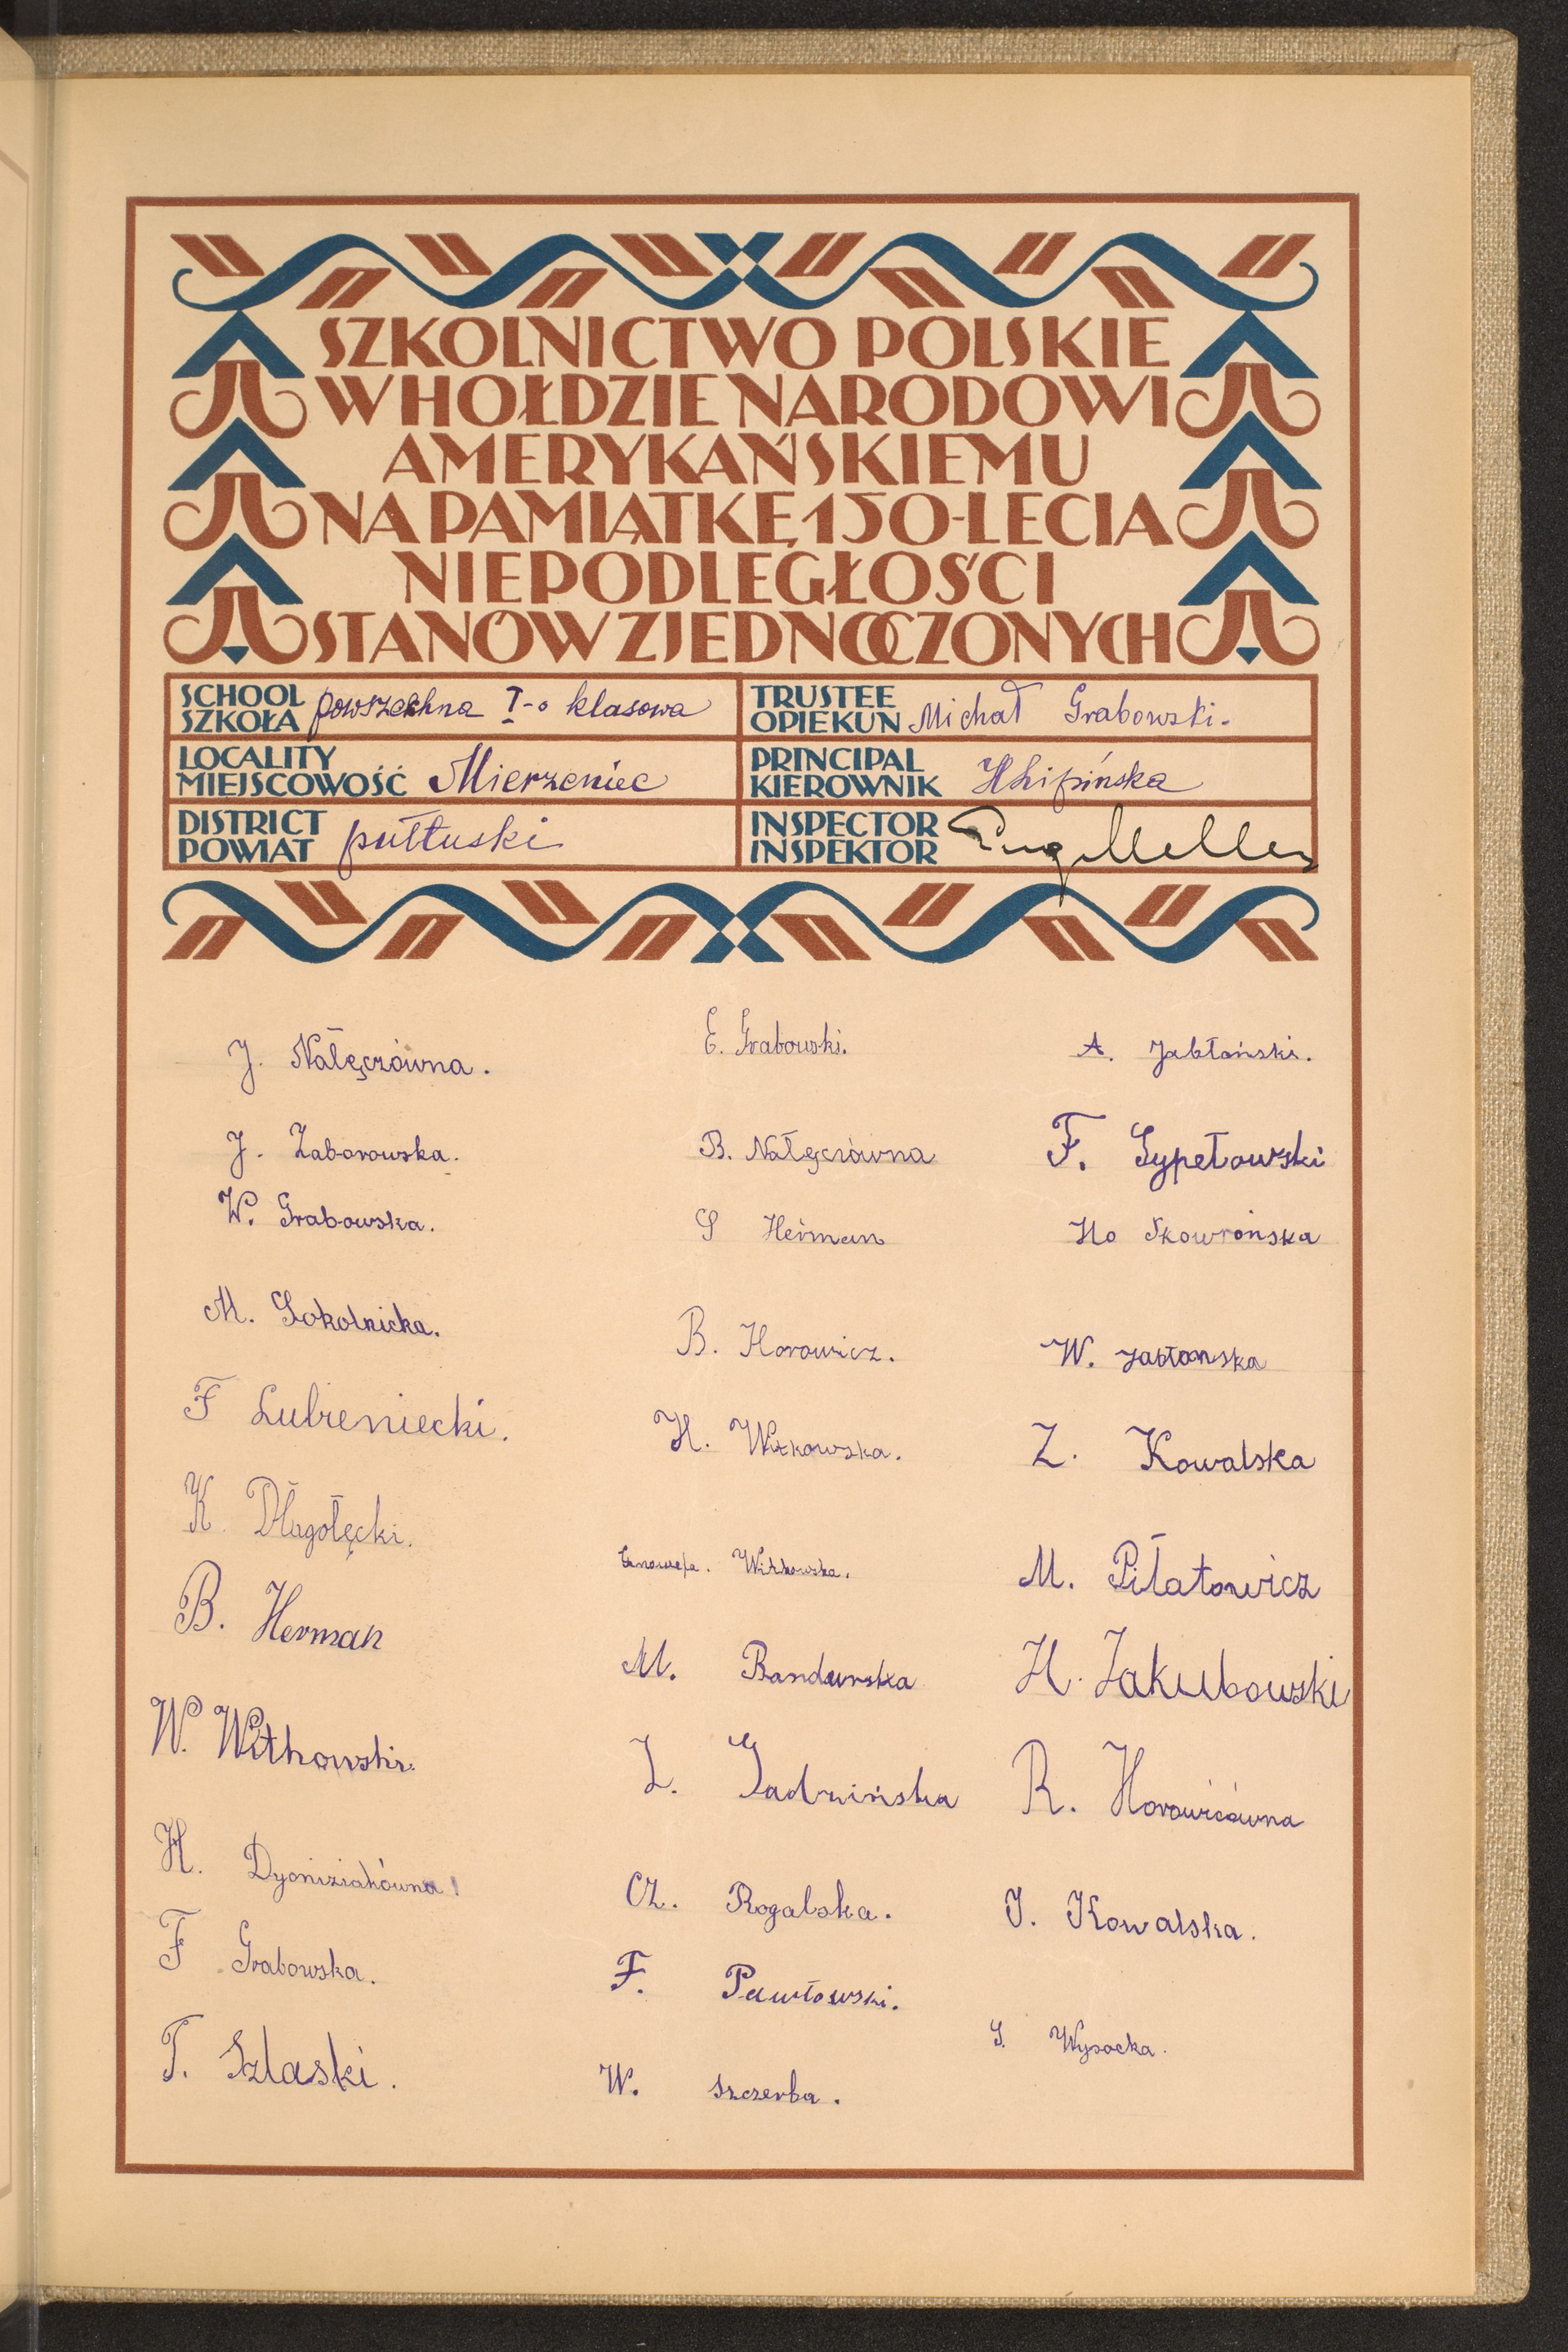 SZKOLNICTWO POLSKIE
W HOŁDZIE NARODOWI
AMERYKAŃSKIEMU
NA PAMIĄTKĘ 150-LECIA
NIEPODLEGŁOŚCI
STANÓW ZJEDNOCZONYCH
SCHOOL
SZKOŁA powszechna I-o klasowa
LOCALITY
MIEJSCOWOŚĆ Mierzeniec
DISTRICT
POWIAT pułtuski
TRUSTEE
OPIEKUN Michał Grabowski.
PRINCIPAL
KIEROWNIK HLipińska
INSPECTOR
INSPEKTOR
J. Nałęczówna.
J. Zaborowska.
W. Grabowska.
M. Sokolnicka.
F Lubieniecki.
K. Długołęcki.
B. Herman
W. Witkowski.
H. Dyoniziakówna!
F Grabowska.
T. Szlaski.
E. Grabowski.
B. Nałęczówna
S Herman
B. Horowicz.
H. Witkowska.
Genowefa. Witkowska.
M. Bandurska
Z. Jadwińska
Cz. Rogalska.
F. Pawłowski.
W. Szczerba.
A. Jabłoński.
F. Sypełowski
Ho Skowrońska
W. Jabłonska
Z. Kowalska
M. Piłatowicz
H. Jakubowski
R. Horowicówna
J. Kowalska.
S. Wysocka.